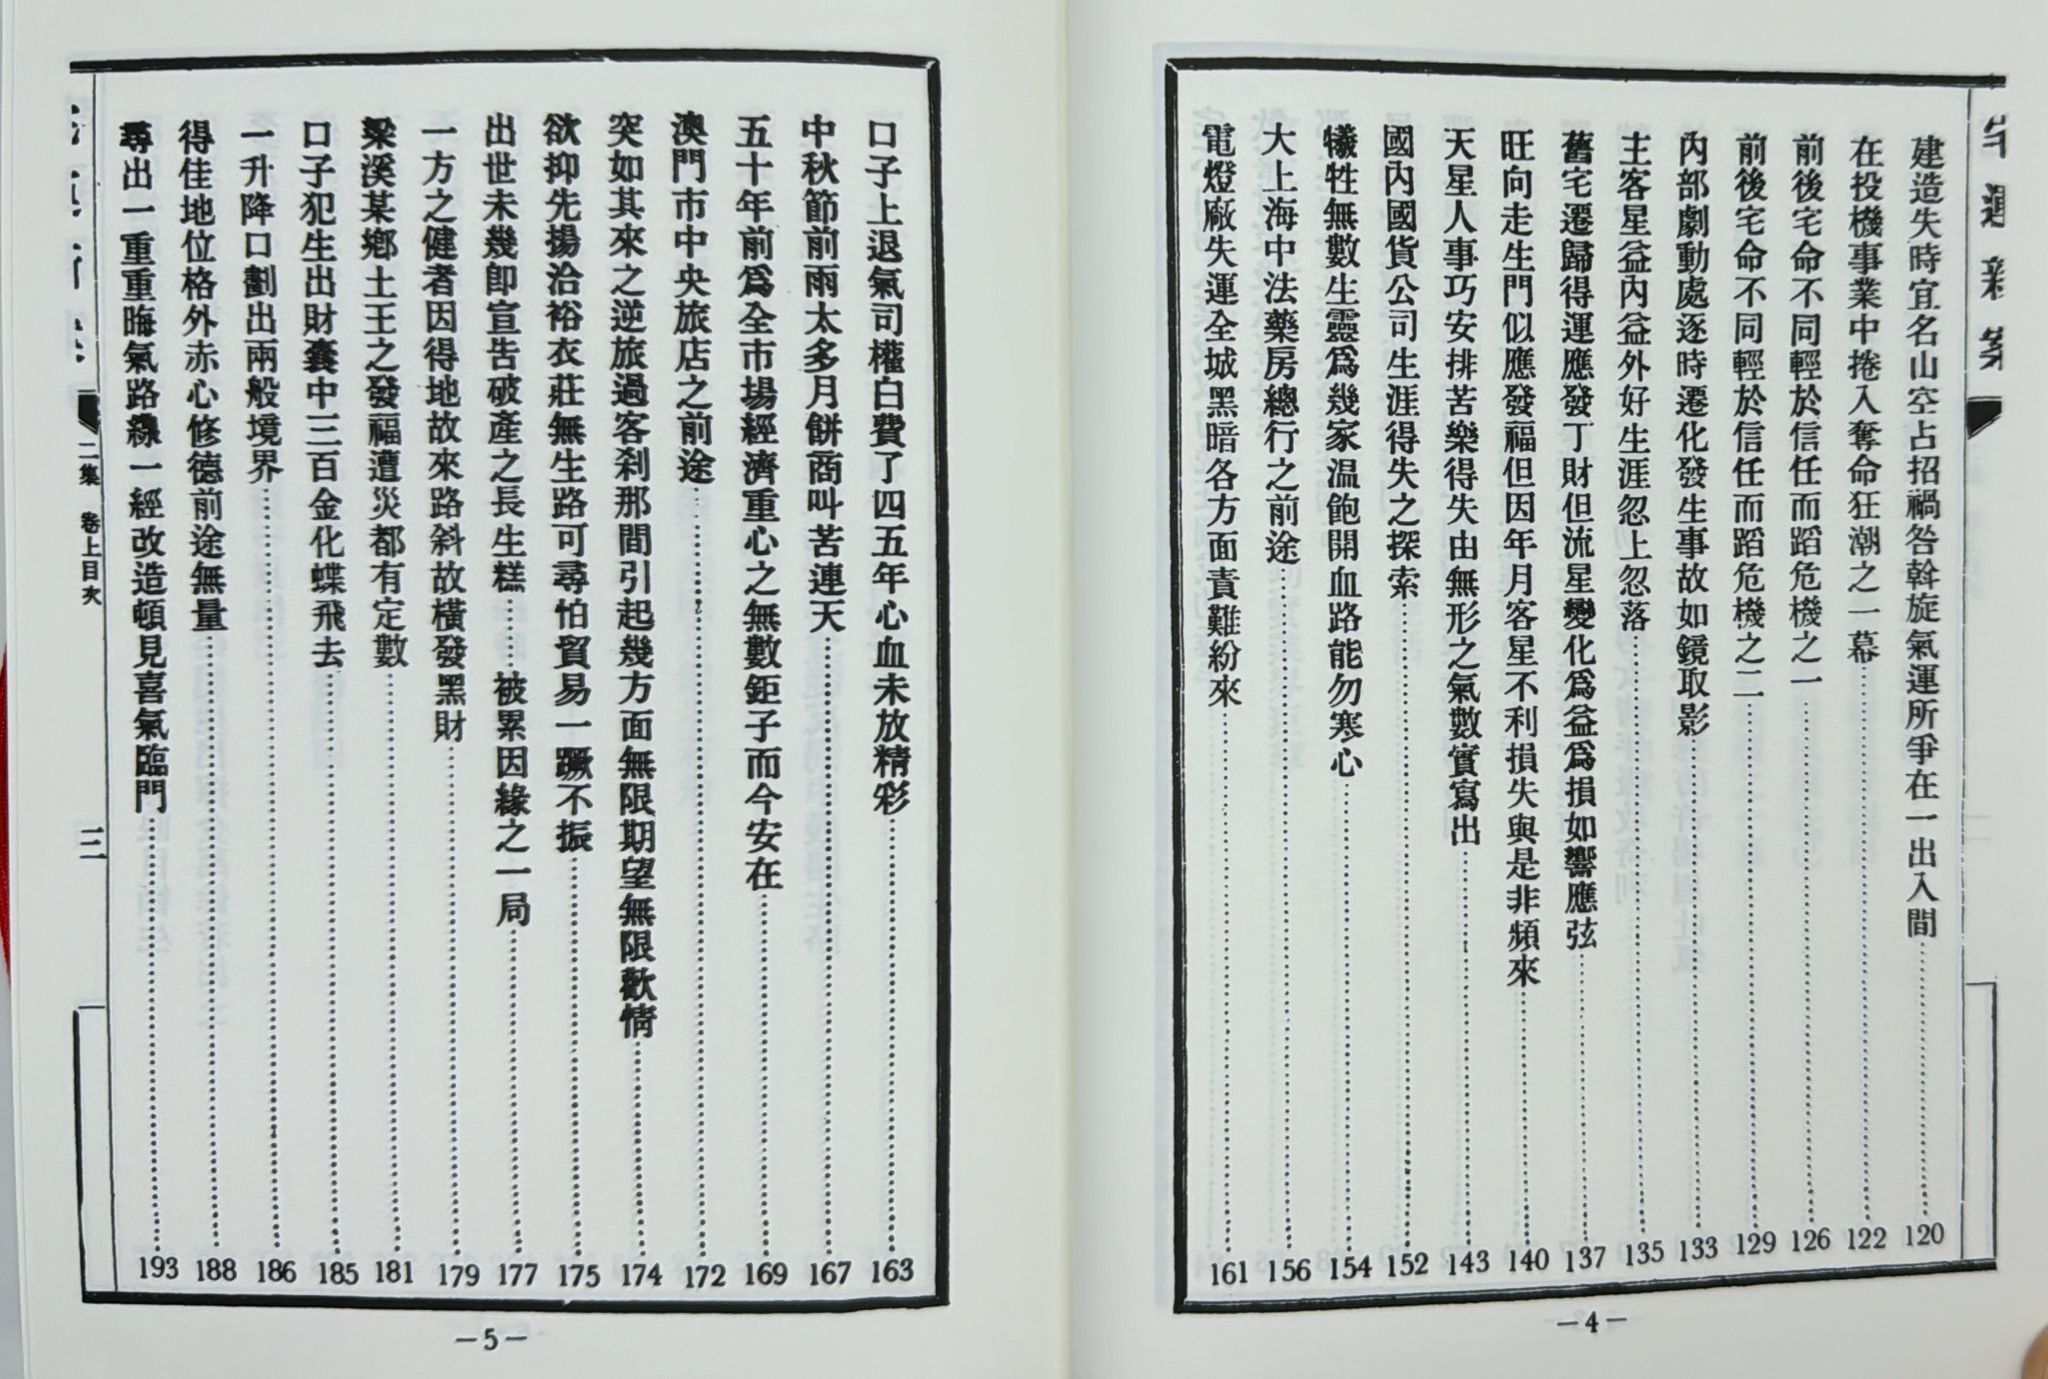 宅運新案
建造失時宜名山空占招禍咎斡旋氣運所爭在一出入間……120
在投機事業中捲入奪命狂潮之一幕……122
前後宅命不同輕於信任而蹈危機之一……126
前後宅命不同輕於信任而蹈危機之二……129
內部劇動處逐時遷化發生事故如鏡取影……133
主客星益內益外好生涯忽上忽落……135
舊宅遷歸得運應發丁財但流星變化為益為損如響應弦……137
旺向走生門似應發福但因年月客星不利損失與是非頻來……140
天星人事巧安排苦樂得失由無形之氣數實寫出……143
國內國貨公司生涯得失之探索……152
犧牲無數生靈為幾家溫飽開血路能勿寒心……154
大上海中法藥房總行之前途……156
電燈廠失運全城黑暗各方面責難紛來……161
—4—
口子上退氣司權白費了四五年心血未放精彩……163
中秋節前雨太多月餅商叫苦連天……167
五十年前為全市場經濟重心之無數鉅子而今安在……169
澳門市中央旅店之前途……172
突如其來之逆旅過客剎那間引起幾方面無限期望無限歡情……174
欲抑先揚洽裕衣莊無生路可尋怕貿易一蹶不振……175
出世未幾即宣告破產之長生糕……被累因緣之一局……177
一方之健者因得地故來路斜故橫發黑財……179
梁溪某鄉土王之發福遭災都有定數……181
口子犯生出財囊中三百金化蝶飛去……185
一升降口劃出兩般境界……186
得佳地位格外赤心修德前途無量……188
尋出一重重晦氣路線一經改造頓見喜氣臨門……193
二集 卷上目次
三
—5—